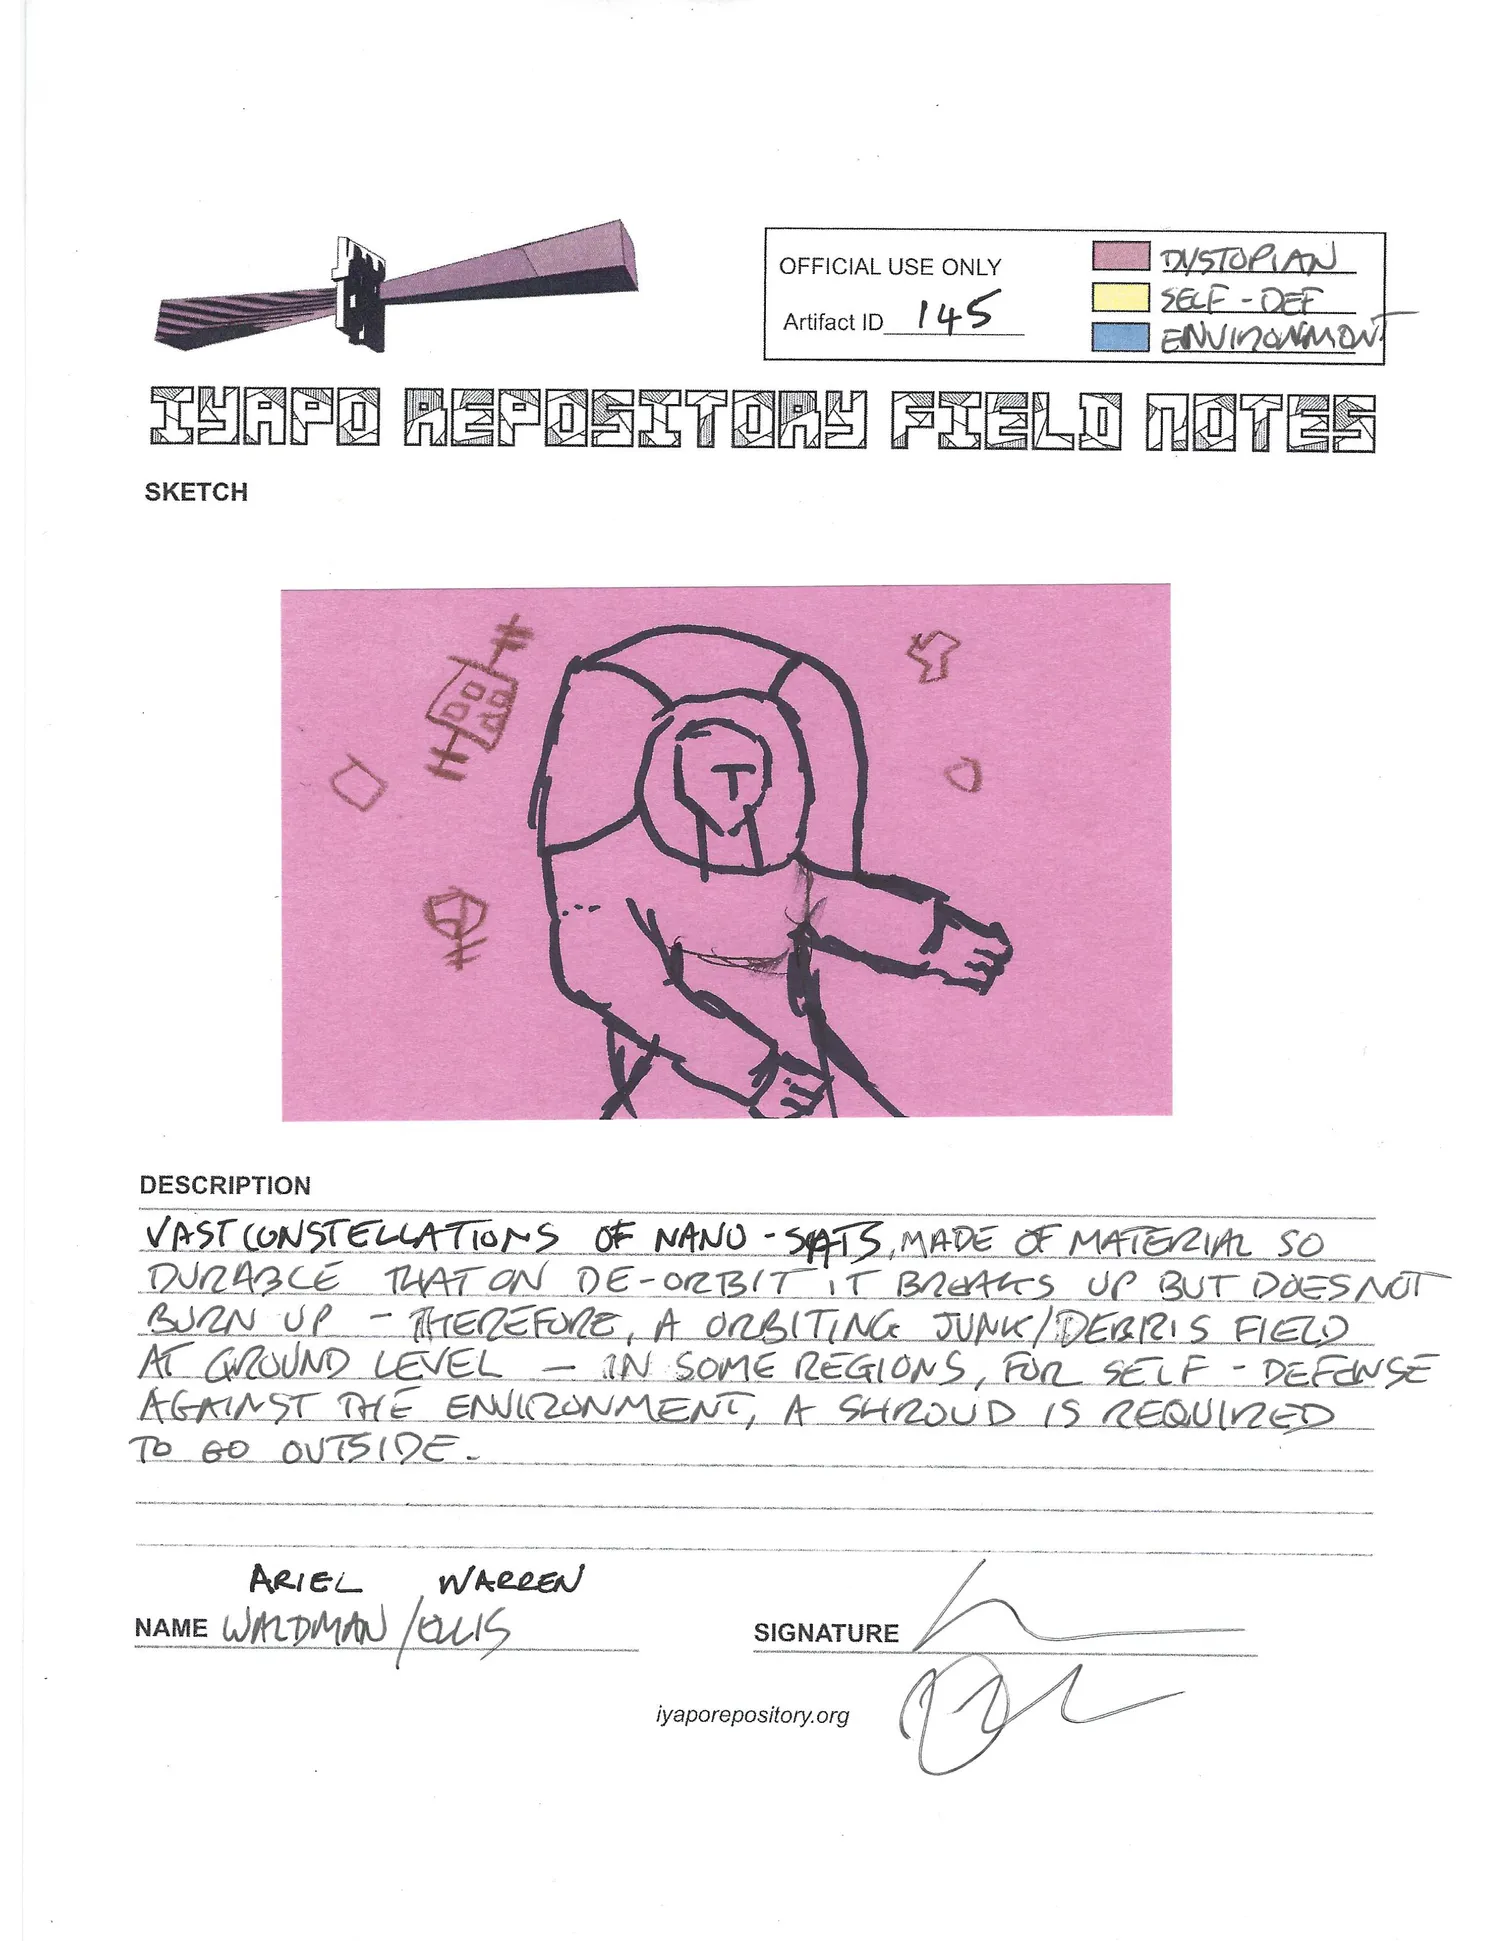 OFFICIAL USE ONLY
Artifact ID 145
DYSTOPIAN
SELF-DEF
ENVIRONMENT
IYAPO REPOSITORY FIELD NOTES
SKETCH
DESCRIPTION
VAST CONSTELLATIONS OF NANO-SATS, MADE OF MATERIAL SO
DURABLE THAT ON DE-ORBIT IT BREAKS UP BUT DOES NOT
BURN UP - THEREFORE, A ORBITING JUNK/DEBRIS FIELD
AT GROUND LEVEL - IN SOME REGIONS, FOR SELF-DEFENSE
AGAINST THE ENVIRONMENT, A SHROUD IS REQUIRED
TO GO OUTSIDE.
ARIEL WARREN
NAME WALDMAN/ELLIS
SIGNATURE
iyaporepository.org